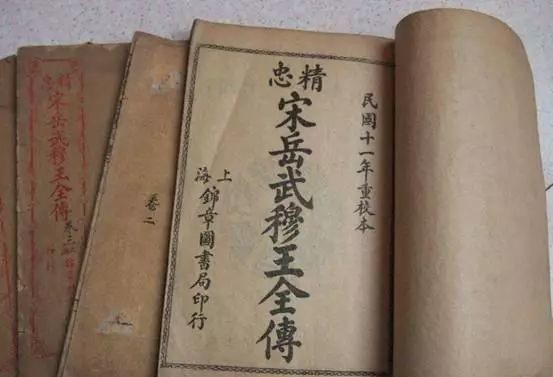 民國十一年重校本
精忠
宋岳武穆王全傳
上海錦章圖書局印行
卷二
精忠
宋岳武穆王全傳
卷三